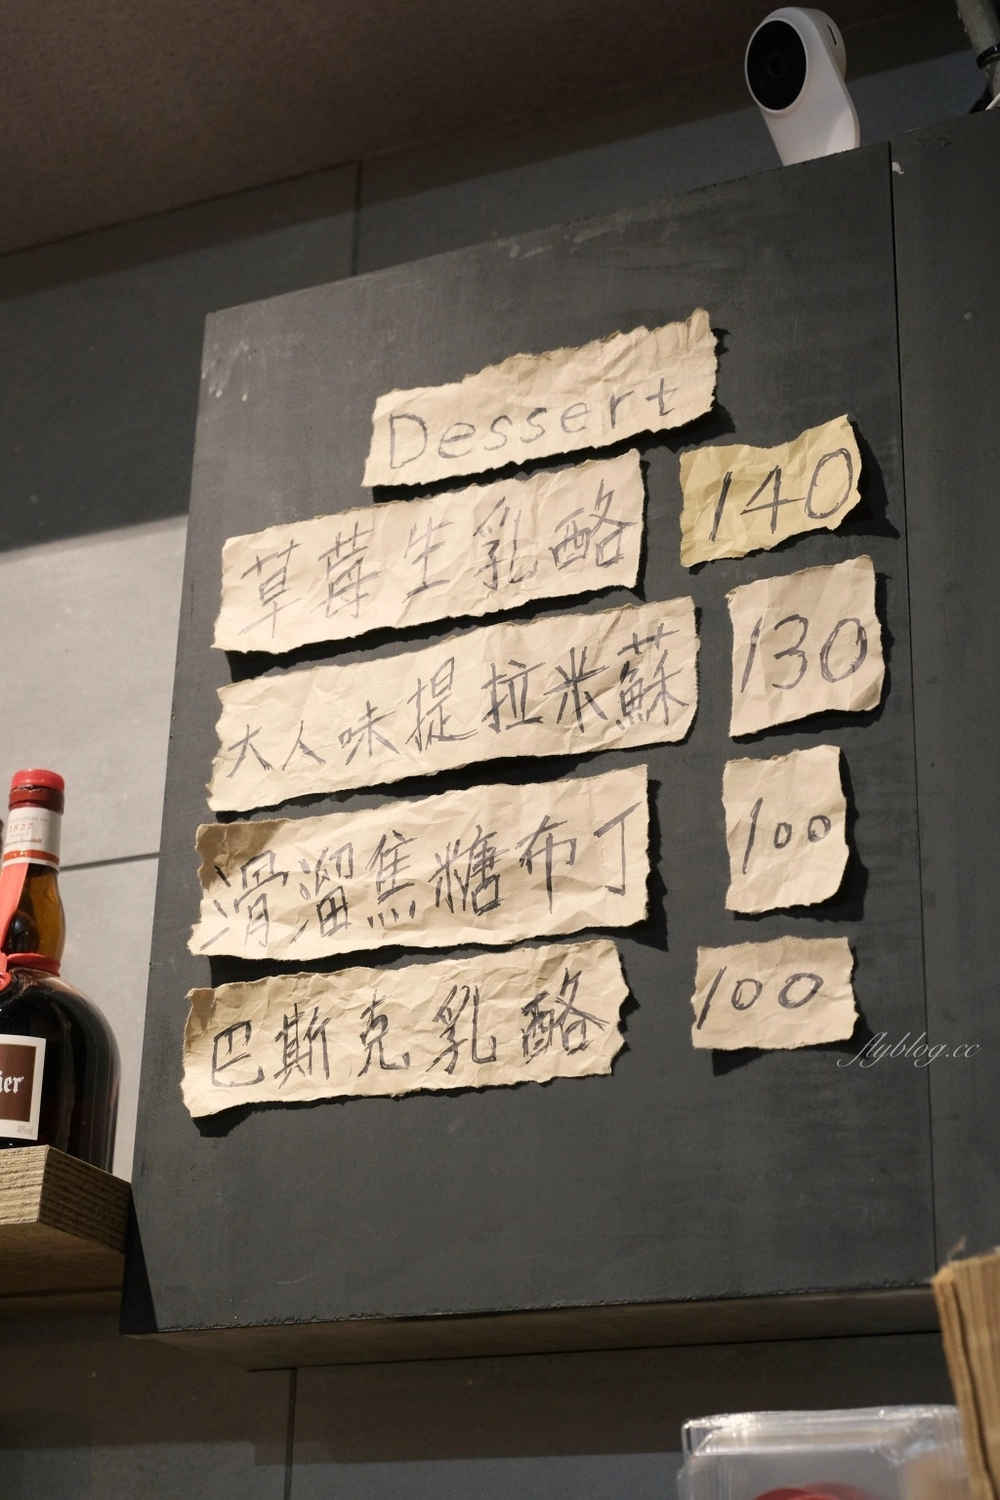 Dessert
草莓生乳酪 140
大人味提拉米蘇 130
滑溜焦糖布丁 100
巴斯克乳酪 100
1827
ier
flyblog.cc